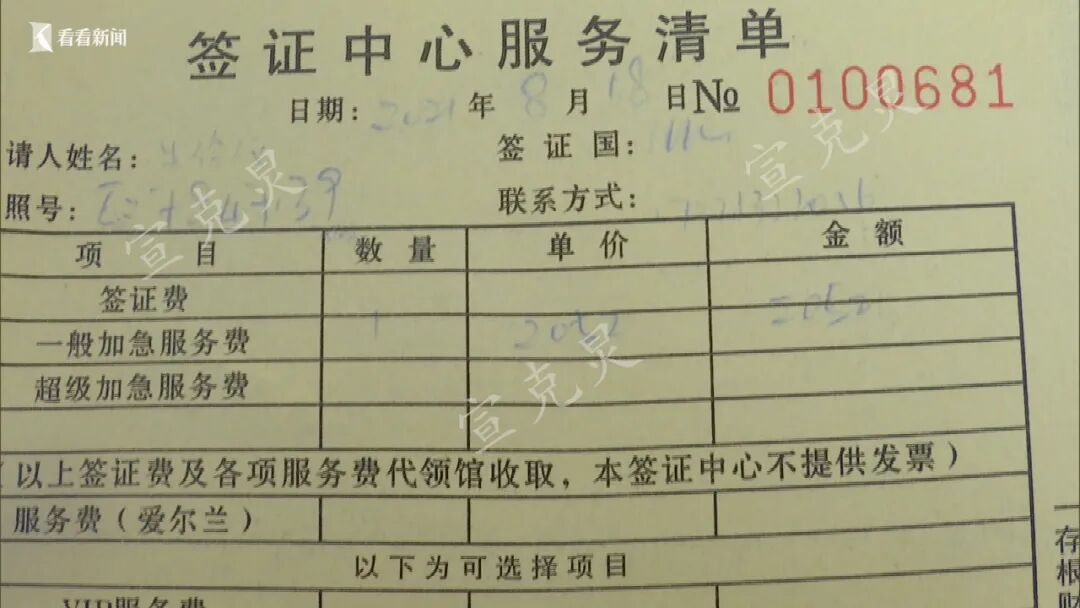 看看新闻
签证中心服务清单
日期: 2021 年 8 月 18 日 № 0100681
请人姓名: 签 证 国:
照号: 联系方式:
项 目 数 量 单 价 金 额
签证费
一般加急服务费 1 2050 2050
超级加急服务费
(以上签证费及各项服务费代领馆收取，本签证中心不提供发票)
服务费(爱尔兰)
以下为可选择项目
VIP服务费
存根
宣克灵
宣克灵
宣克灵
宣克灵